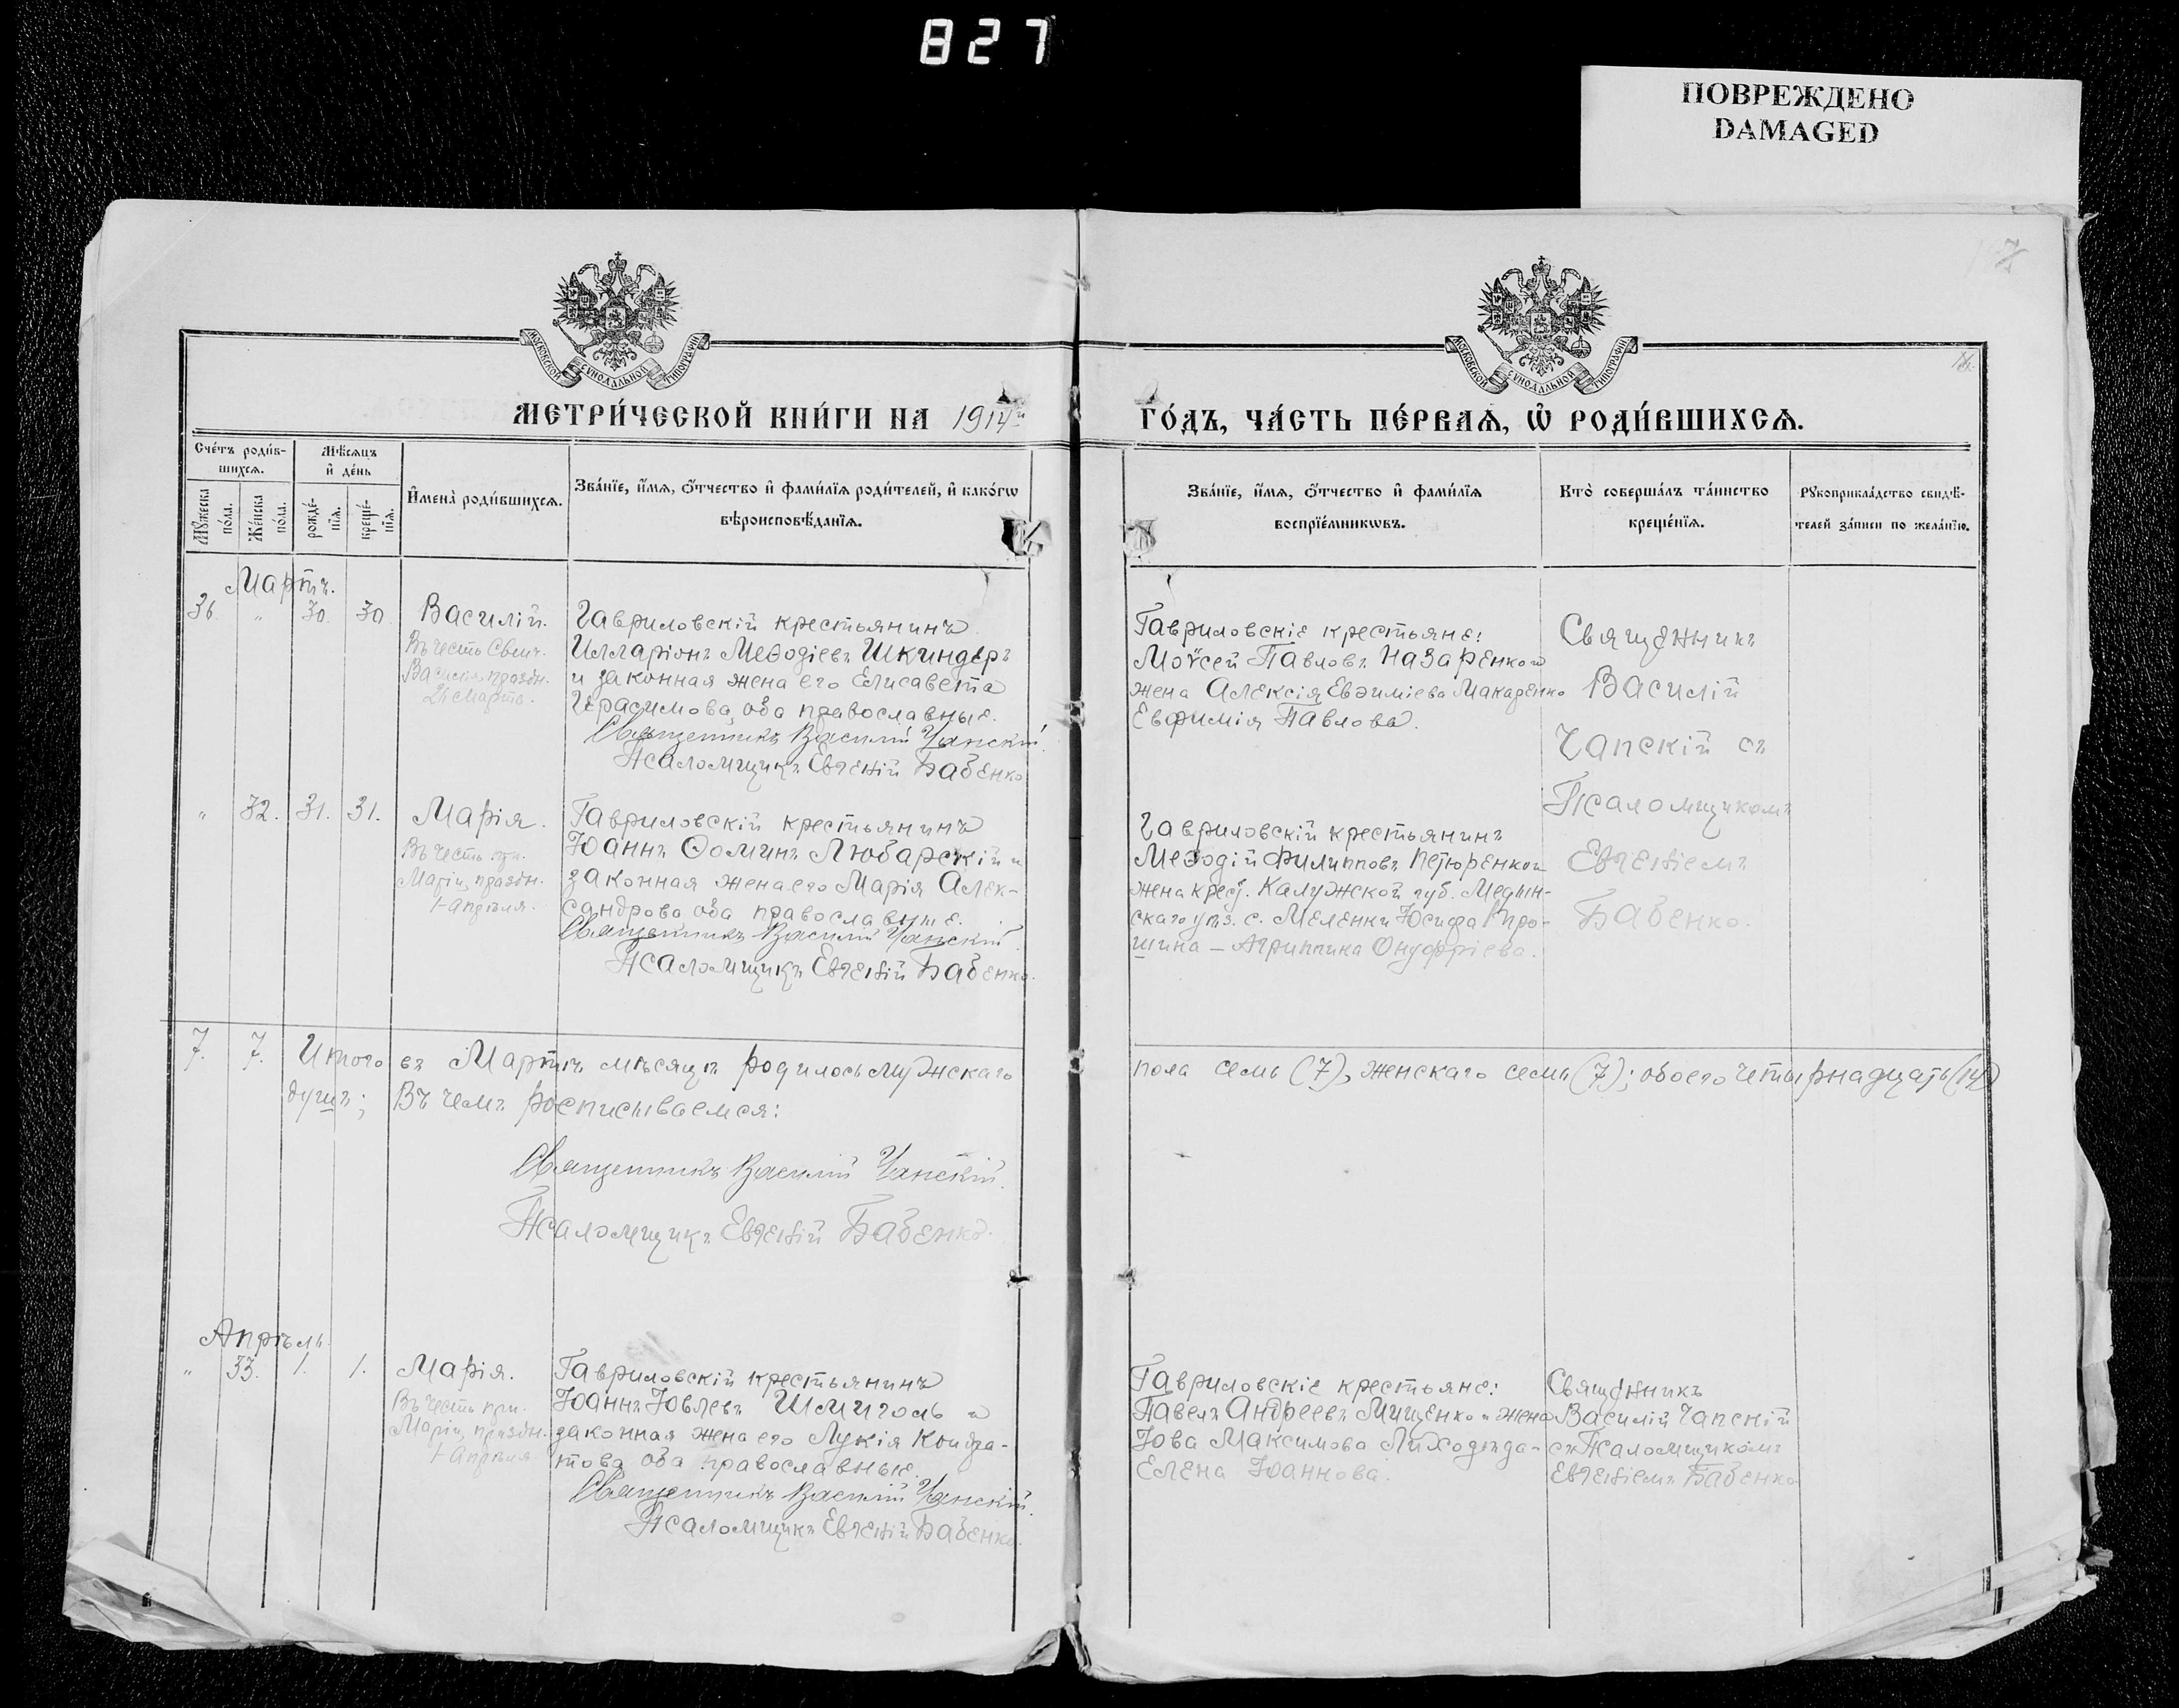 827
ПОВРЕЖДЕНО
DAMAGED
7
МОСКОВСКОЙ СѴНОДАЛЬНОЙ ТИПОГРАФІИ
МОСКОВСКОЙ СѴНОДАЛЬНОЙ ТИПОГРАФІИ
МЕТРИ́ЧЕСКОЙ КНИ́ГИ НА 1914й
ГО́ДЪ, ЧА́СТЬ ПЕ́РВАѦ, Ѡ҆ РОДИ́ВШИХСѦ.
Сче́тъ роди́в-
шихсѧ.
Мѣ́сѧцъ
и҆ де́нь
Мꙋ́жеска
по́ла.
Же́нска
по́ла.
рожде́-
нїѧ.
креще́-
нїѧ.
И҆мена̀ роди́вшихсѧ.
Зва́нїе, и҆́мѧ, ѻ҆́тчество и҆ фами́лїѧ роди́телей, и҆ како́гѡ
вѣроисповѣ́данїѧ.
Зва́нїе, и҆́мѧ, ѻ҆́тчество и҆ фами́лїѧ
воспрїе́мникѡвъ.
Кто̀ соверша́лъ та́инство
креще́нїѧ.
Рꙋкоприкла́дство свидѣ́-
телей за́писи по жела́нїю.
Мартъ.
36. " 30. 30. Василій.
Въ честь Свщ.
Василія праздн.
Марта.
Гавриловскій крестьянинъ
Илларіонъ Меѳодіевъ Шкиндеръ
и законная жена его Елисавета
Герасимова, оба православные.
Священникъ Василій Чапскій.
Псаломщикъ Евгеній Бабенко
Гавриловскіе крестьяне:
Моѵсей Павловъ Назаренко и
жена Алексія Евѳиміева Макаденко
Евфимія Павлова.
Священникъ
Василій
Чапскій съ
Псаломщикомъ
Евгеніемъ
Бабенко.
" 32. 31. 31. Марія.
Въ честь пр.
Маріи, праздн.
1 апрѣля.
Гавриловскій крестьянинъ
Іоаннъ Ѳоминъ Любарскій и
законная жена его Марія Алек-
сандрова оба православные.
Священникъ Василій Чапскій.
Псаломщикъ Евгеній Бабенко.
Гавриловскій крестьянинъ
Меѳодій Филипповъ Петюренко и
жена крест. Калужской губ. Медын-
скаго уѣз. с. Меленки Іосифа
шина – Агриппина Онуфріева.
7. 7. Итого въ Мартѣ мѣсяцѣ родилось мужскаго
пола семь (7), женскаго семь (7); обоего четырнадцать (14)
душъ; Въ чемъ росписываемся:
Священникъ Василій Чапскій.
Псаломщикъ Евгеній Бабенко.
Апрѣль.
" 33. 1. 1. Марія.
Въ честь пр.
Маріи, праздн.
1 апрѣля
Гавриловскій крестьянинъ
Іоаннъ Іовлевъ Шмиголь и
законная жена его Лукія Кондра-
това оба православные.
Священникъ Василій Чапскій.
Псаломщикъ Евгеній Бабенко.
Гавриловскіе крестьяне:
Павелъ Андреевъ Мищенко и жена
Іова Максимова Лиходѣда-
Елена Іоаннова.
Священникъ
Василій Чапскій
съ Псаломщикомъ
Евгеніемъ Бабенко